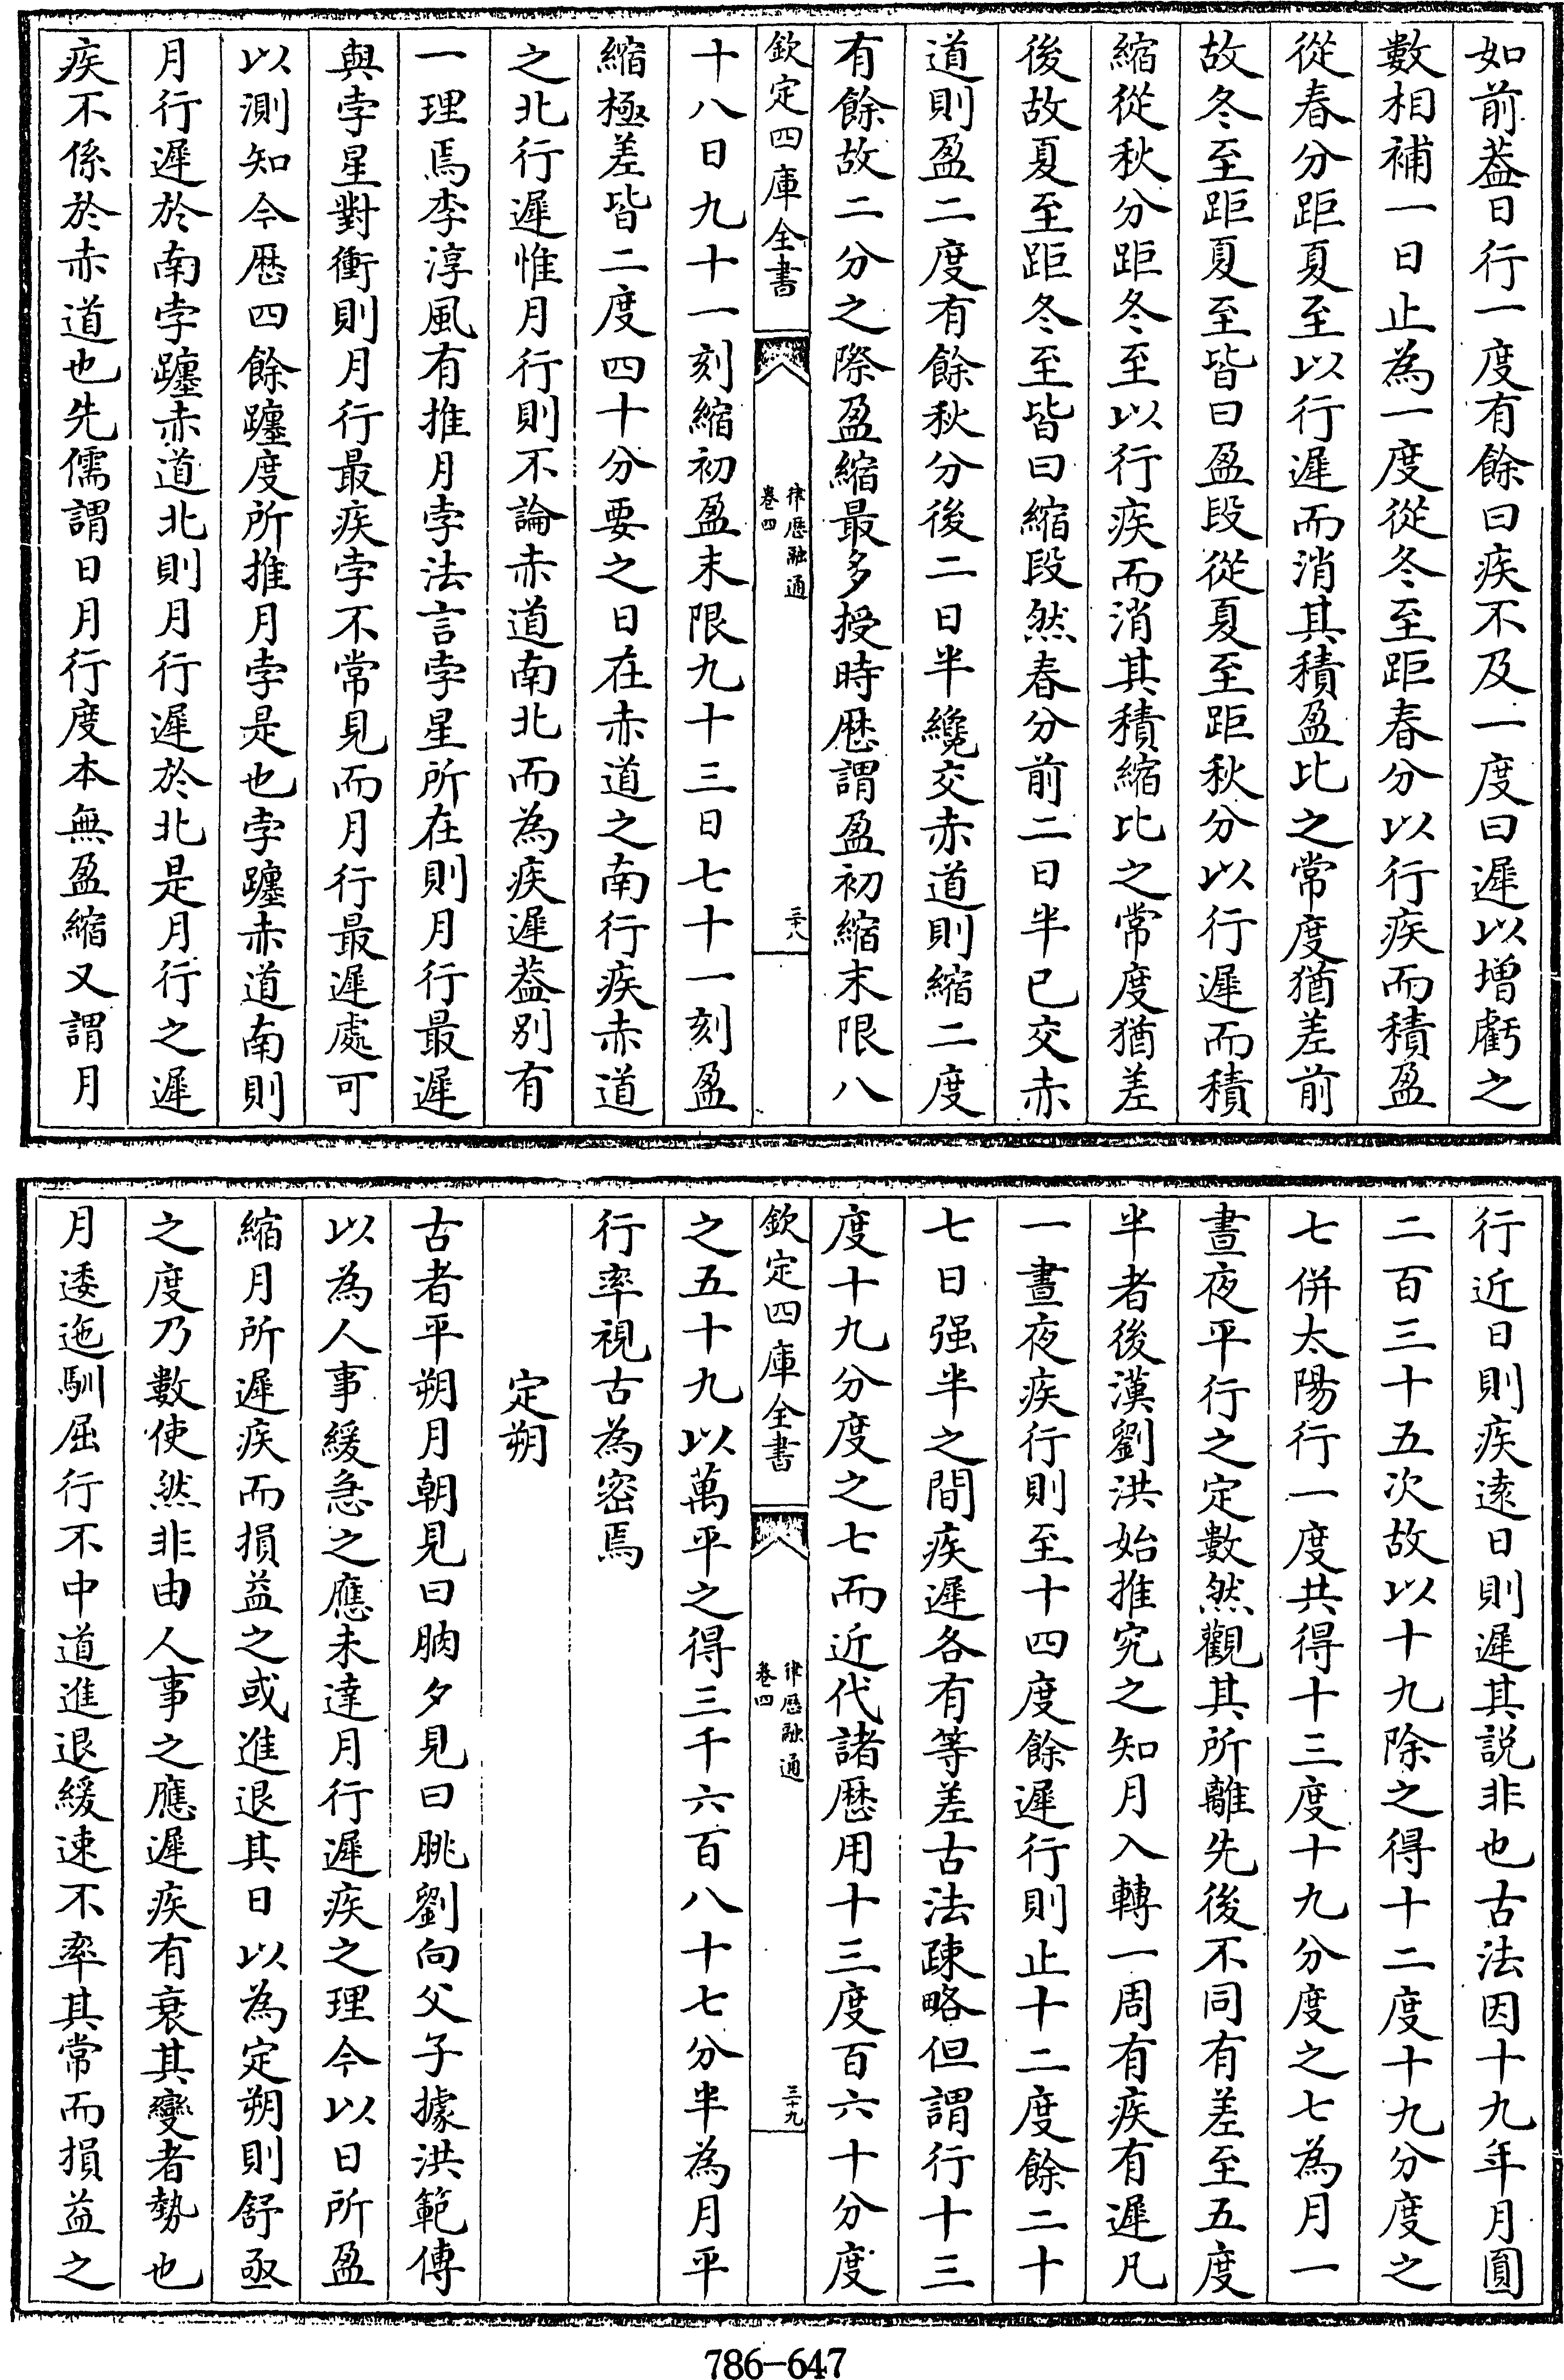 如前葢日行一度有餘曰疾不及一度曰遲以增虧之
數相補一日止為一度從冬至距春分以行疾而積盈
從春分距夏至以行遲而消其積盈比之常度猶差前
故冬至距夏至皆曰盈段從夏至距秋分以行遲而積
縮從秋分距冬至以行疾而消其積縮比之常度猶差
後故夏至距冬至皆曰縮段然春分前二日半已交赤
道則盈二度有餘秋分後二日半纔交赤道則縮二度
有餘故二分之際盈縮最多授時厯謂盈初縮末限八
欽定四庫全書
律厯融通
卷四
三十八
十八日九十一刻縮初盈末限九十三日七十一刻盈
縮極差皆二度四十分要之日在赤道之南行疾赤道
之北行遲惟月行則不論赤道南北而為疾遲葢别有
一理焉李淳風有推月孛法言孛星所在則月行最遲
與孛星對衝則月行最疾孛不常見而月行最遲處可
以測知今厯四餘躔度所推月孛是也孛躔赤道南則
月行遲於南孛躔赤道北則月行遲於北是月行之遲
疾不係於赤道也先儒謂日月行度本無盈縮又謂月
行近日則疾逺日則遲其説非也古法因十九年月圓
二百三十五次故以十九除之得十二度十九分度之
七併太陽行一度共得十三度十九分度之七為月一
晝夜平行之定數然觀其所離先後不同有差至五度
半者後漢劉洪始推究之知月入轉一周有疾有遲凡
一晝夜疾行則至十四度餘遲行則止十二度餘二十
七日强半之間疾遲各有等差古法疎略但謂行十三
度十九分度之七而近代諸厯用十三度百六十分度
欽定四庫全書
律厯融通
卷四
三十九
之五十九以萬平之得三千六百八十七分半為月平
行率視古為密焉
定朔
古者平朔月朝見曰朒夕見曰朓劉向父子據洪範傳
以為人事緩急之應未達月行遲疾之理今以日所盈
縮月所遲疾而損益之或進退其日以為定朔則舒亟
之度乃數使然非由人事之應遲疾有衰其變者勢也
月逶迤馴屈行不中道進退緩速不率其常而損益之
786-647